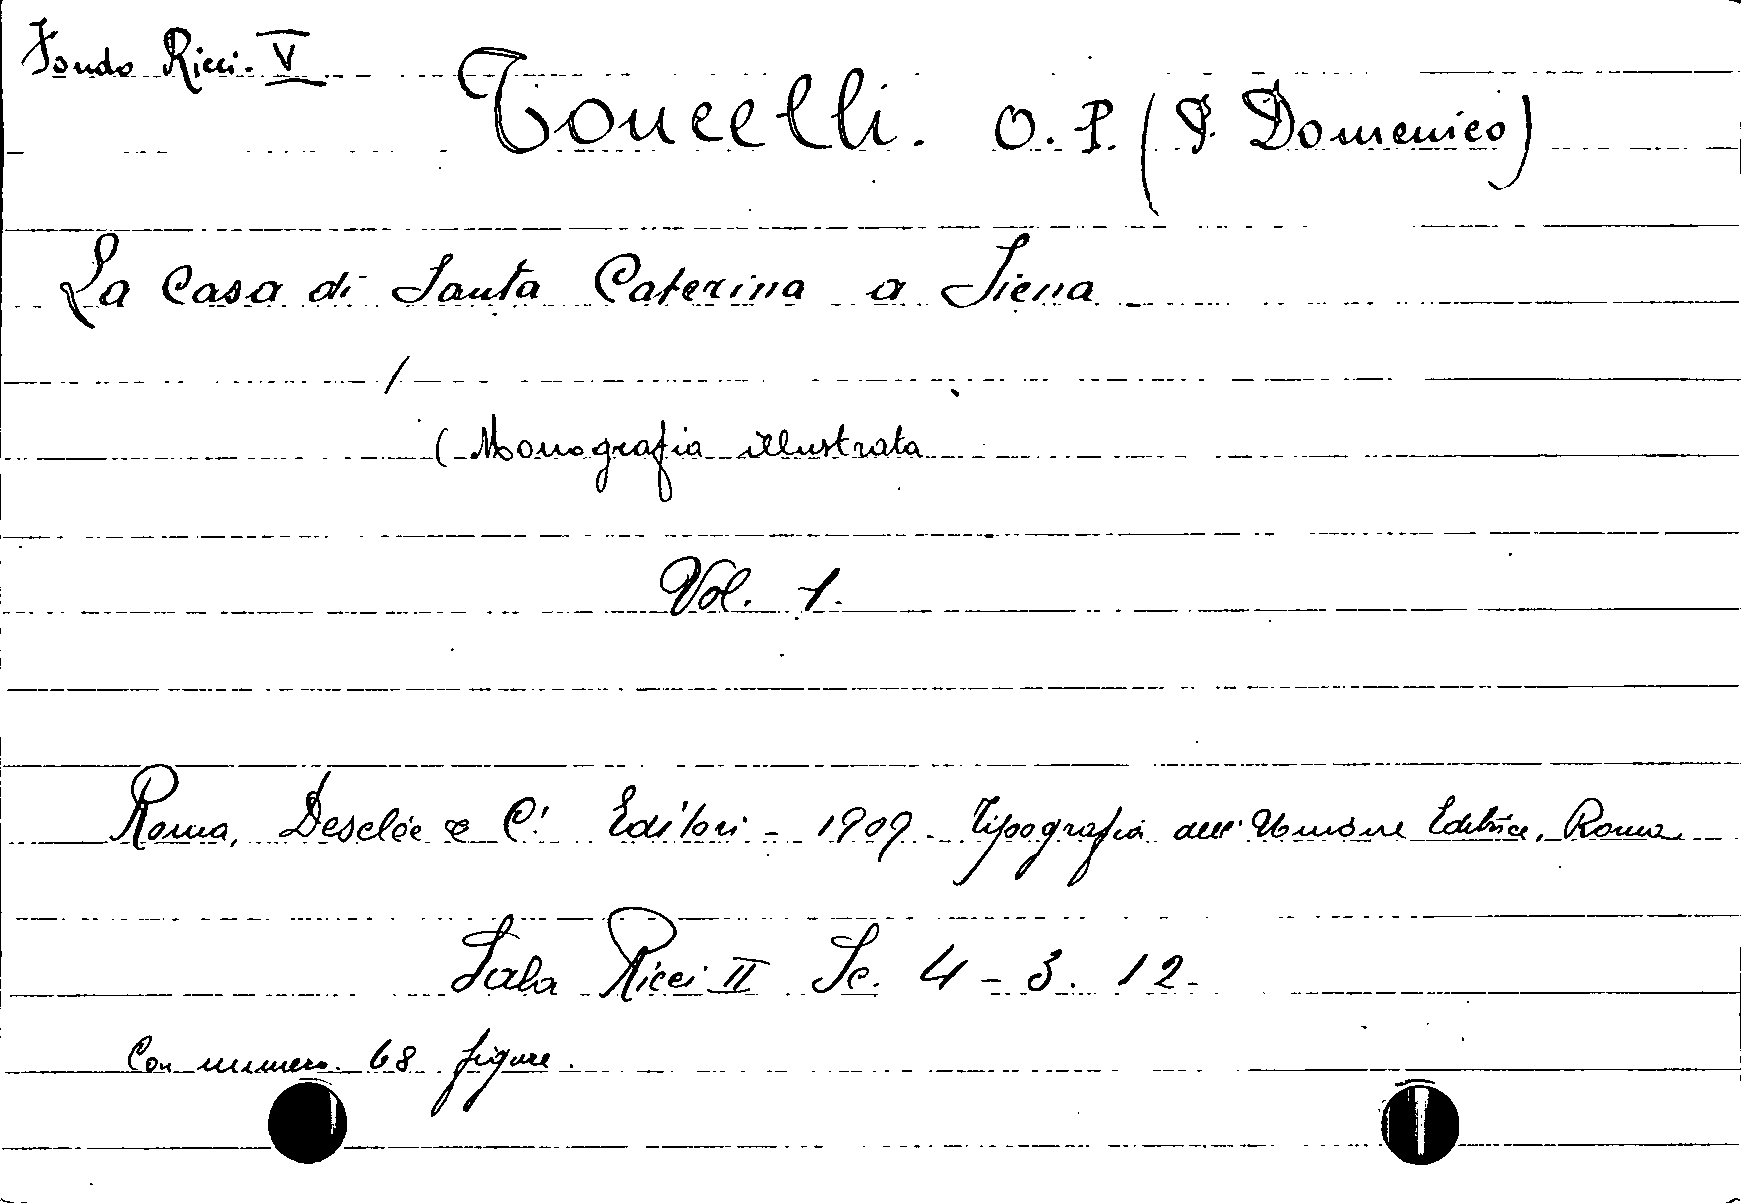 Fondo Ricci. V
Toncelli. O. P. (P. Domenico)
La Casa di Santa Caterina a Siena
(Monografia illustrata
Vol. 1.
Roma, Desclée e C.i Editori - 1909. Tipografia dell'Unione Editrice, Roma
Sala Ricci II Sc. 4 - 3. 12.
Con numero 68 figure.